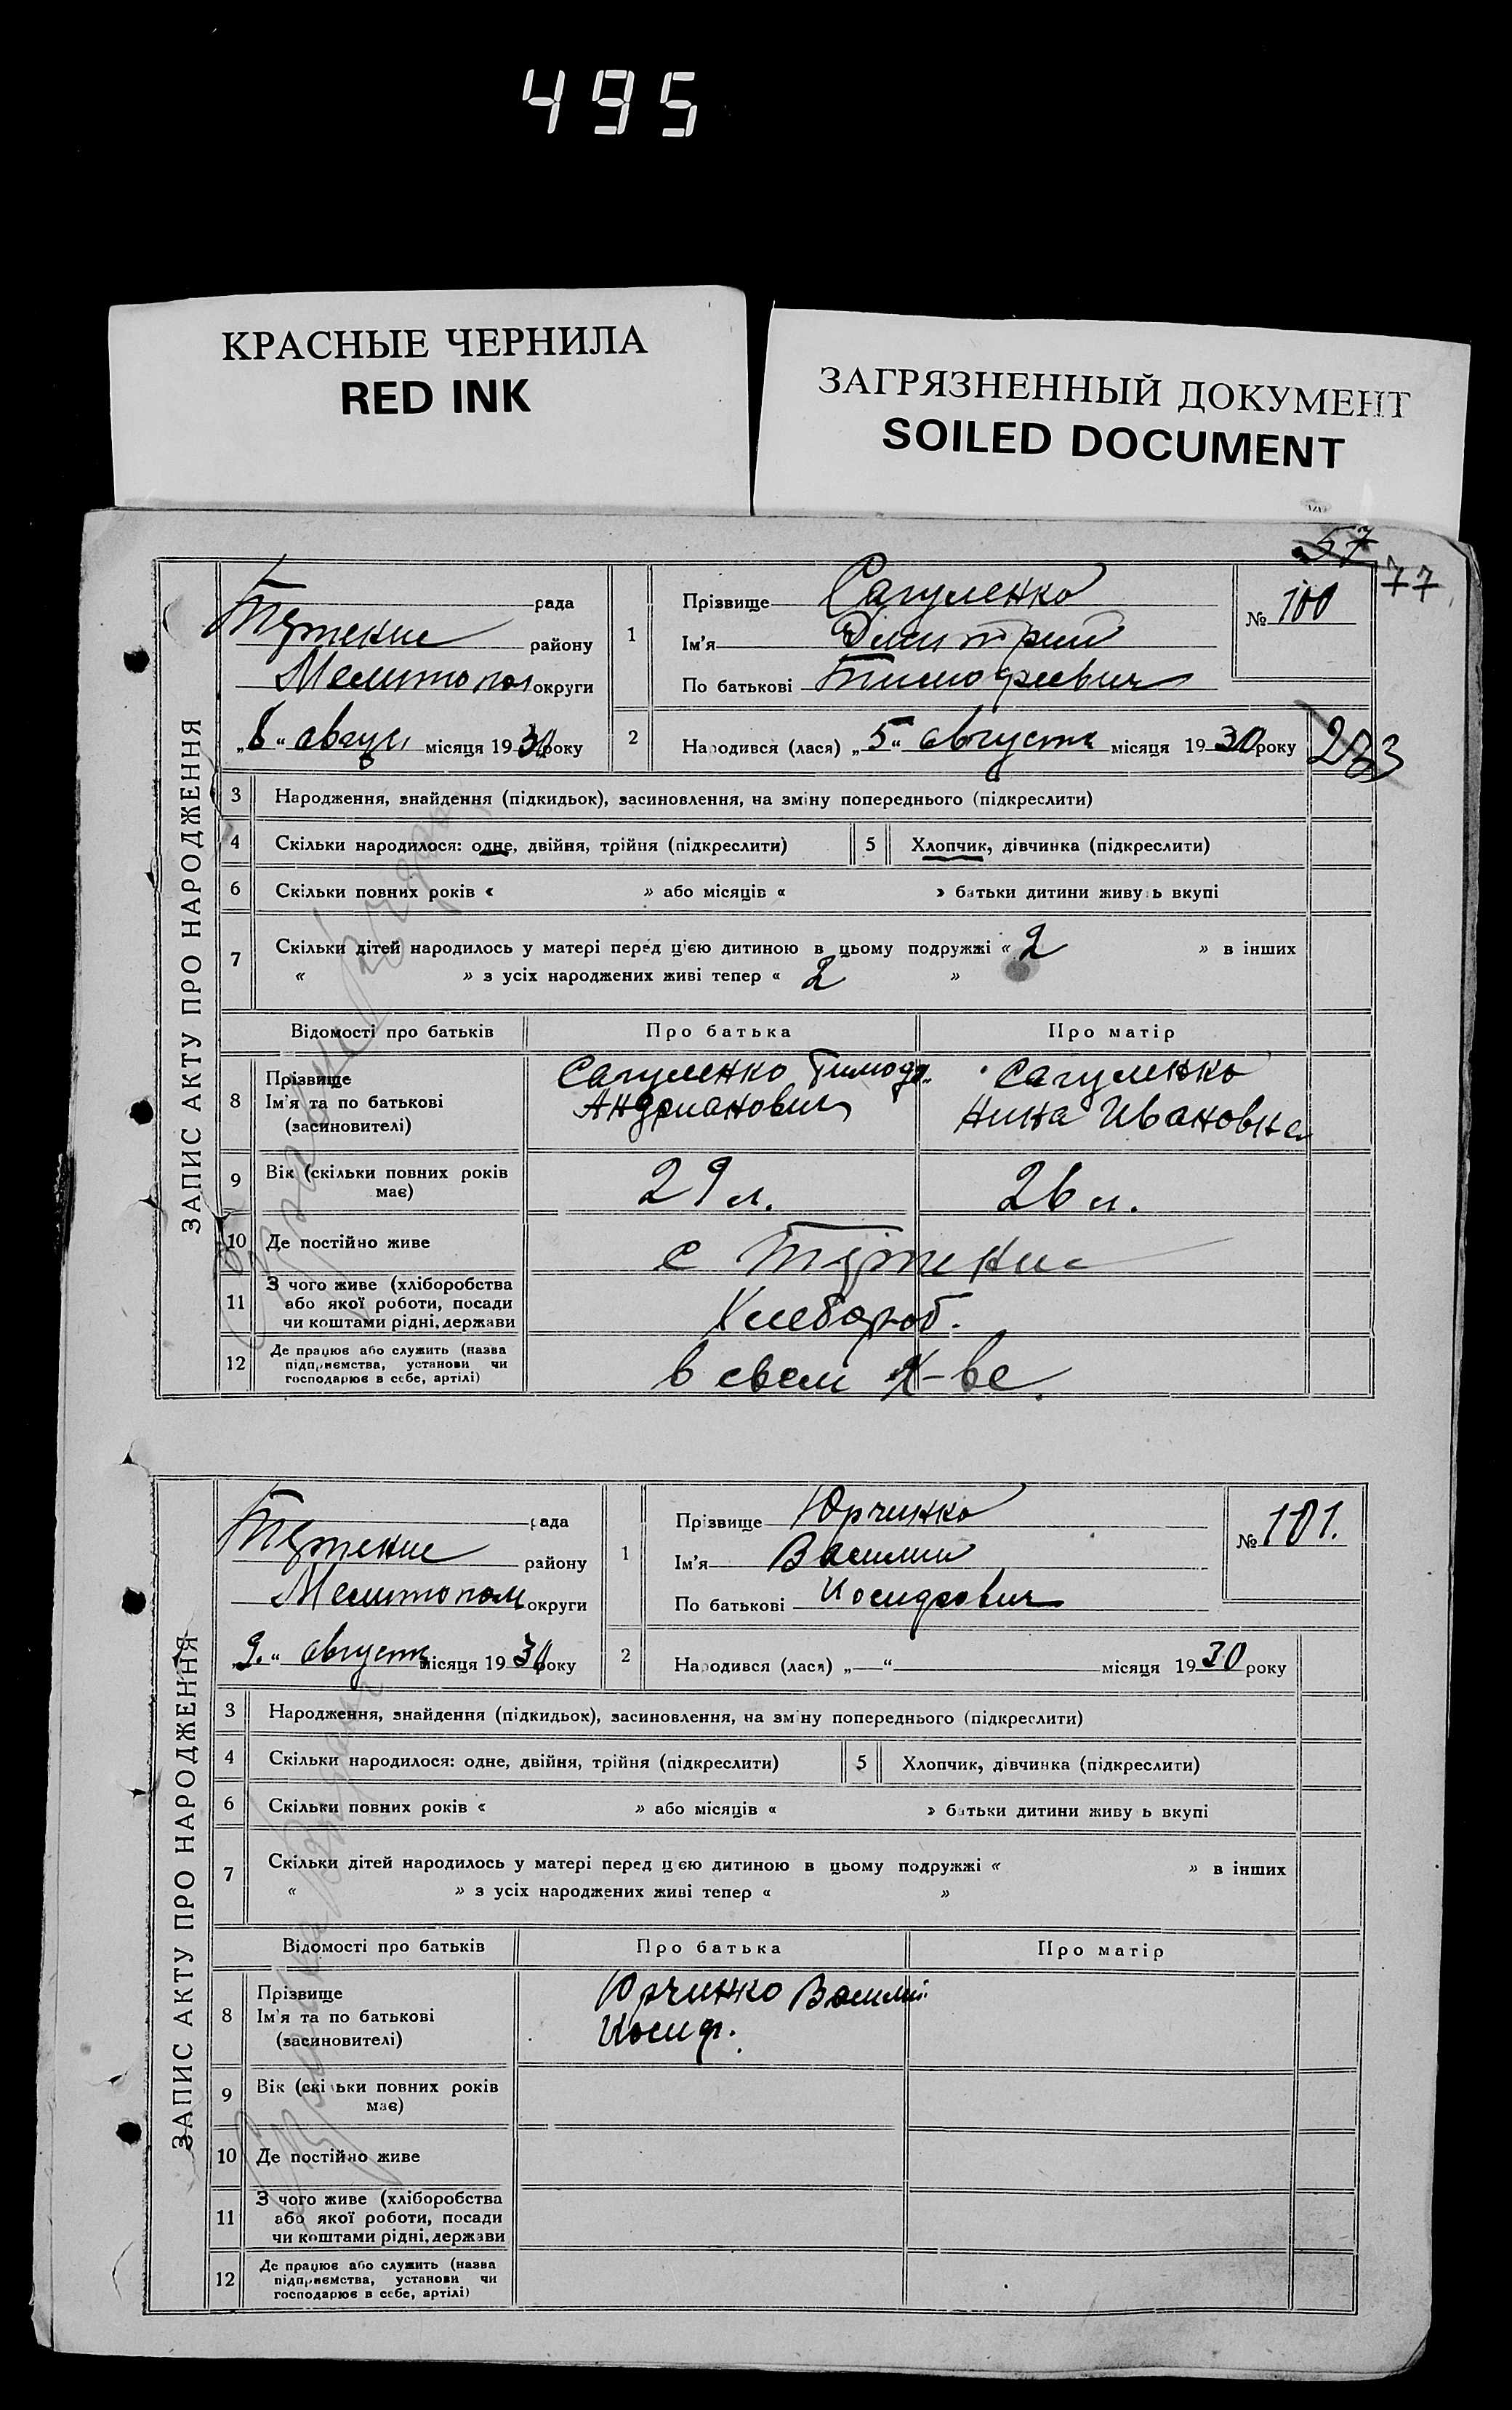 495
КРАСНЫЕ ЧЕРНИЛА
RED INK
ЗАГРЯЗНЕННЫЙ ДОКУМЕНТ
SOILED DOCUMENT
57
77
ЗАПИС АКТУ ПРО НАРОДЖЕННЯ
рада
району
Мелитопол округи
„8“ август місяця 1930 року
1
Прізвище Сагуленко
Ім'я Дмитрий
По батькові Тимофеевич
№ 100
2
Народився (лася) „5“ августа місяця 1930 року
283
3 Народження, знайдення (підкидьок), засиновлення, на зміну попереднього (підкреслити)
4 Скільки народилося: одне, двійня, трійня (підкреслити) 5 Хлопчик, дівчинка (підкреслити)
6 Скільки повних років « » або місяців « » батьки дитини живуть вкупі
7 Скільки дітей народилось у матері перед цією дитиною в цьому подружжі « 2 » в інших
« » з усіх народжених живі тепер « 2 »
Відомості про батьків Про батька Про матір
8 Прізвище
Ім'я та по батькові
(засиновителі)
Сагуленко Тимоф.
Андрианович
Сагуленко
Нина Ивановна
9 Вік (скільки повних років
має)
29 л. 26 л.
10 Де постійно живе с
11 З чого живе (хліборобства
або якої роботи, посади
чи коштами рідні, держави
Хлебороб.
12 Де працює або служить (назва
підприємства, установи чи
господарює в себе, артілі)
в своем х-ве.
ЗАПИС АКТУ ПРО НАРОДЖЕННЯ
рада
району
Мелитопол округи
„9.“ августа місяця 1930 року
1
Прізвище Юрченко
Ім'я Василий
По батькові Иосифович
№ 101.
2
Народився (лася) „—“ місяця 1930 року
3 Народження, знайдення (підкидьок), засиновлення, на зміну попереднього (підкреслити)
4 Скільки народилося: одне, двійня, трійня (підкреслити) 5 Хлопчик, дівчинка (підкреслити)
6 Скільки повних років « » або місяців « » батьки дитини живуть вкупі
7 Скільки дітей народилось у матері перед цією дитиною в цьому подружжі « » в інших
« » з усіх народжених живі тепер « »
Відомості про батьків Про батька Про матір
8 Прізвище
Ім'я та по батькові
(засиновителі)
Юрченко Василий
Иосиф.
9 Вік (скільки повних років
має)
10 Де постійно живе
11 З чого живе (хліборобства
або якої роботи, посади
чи коштами рідні, держави
12 Де працює або служить (назва
підприємства, установи чи
господарює в себе, артілі)